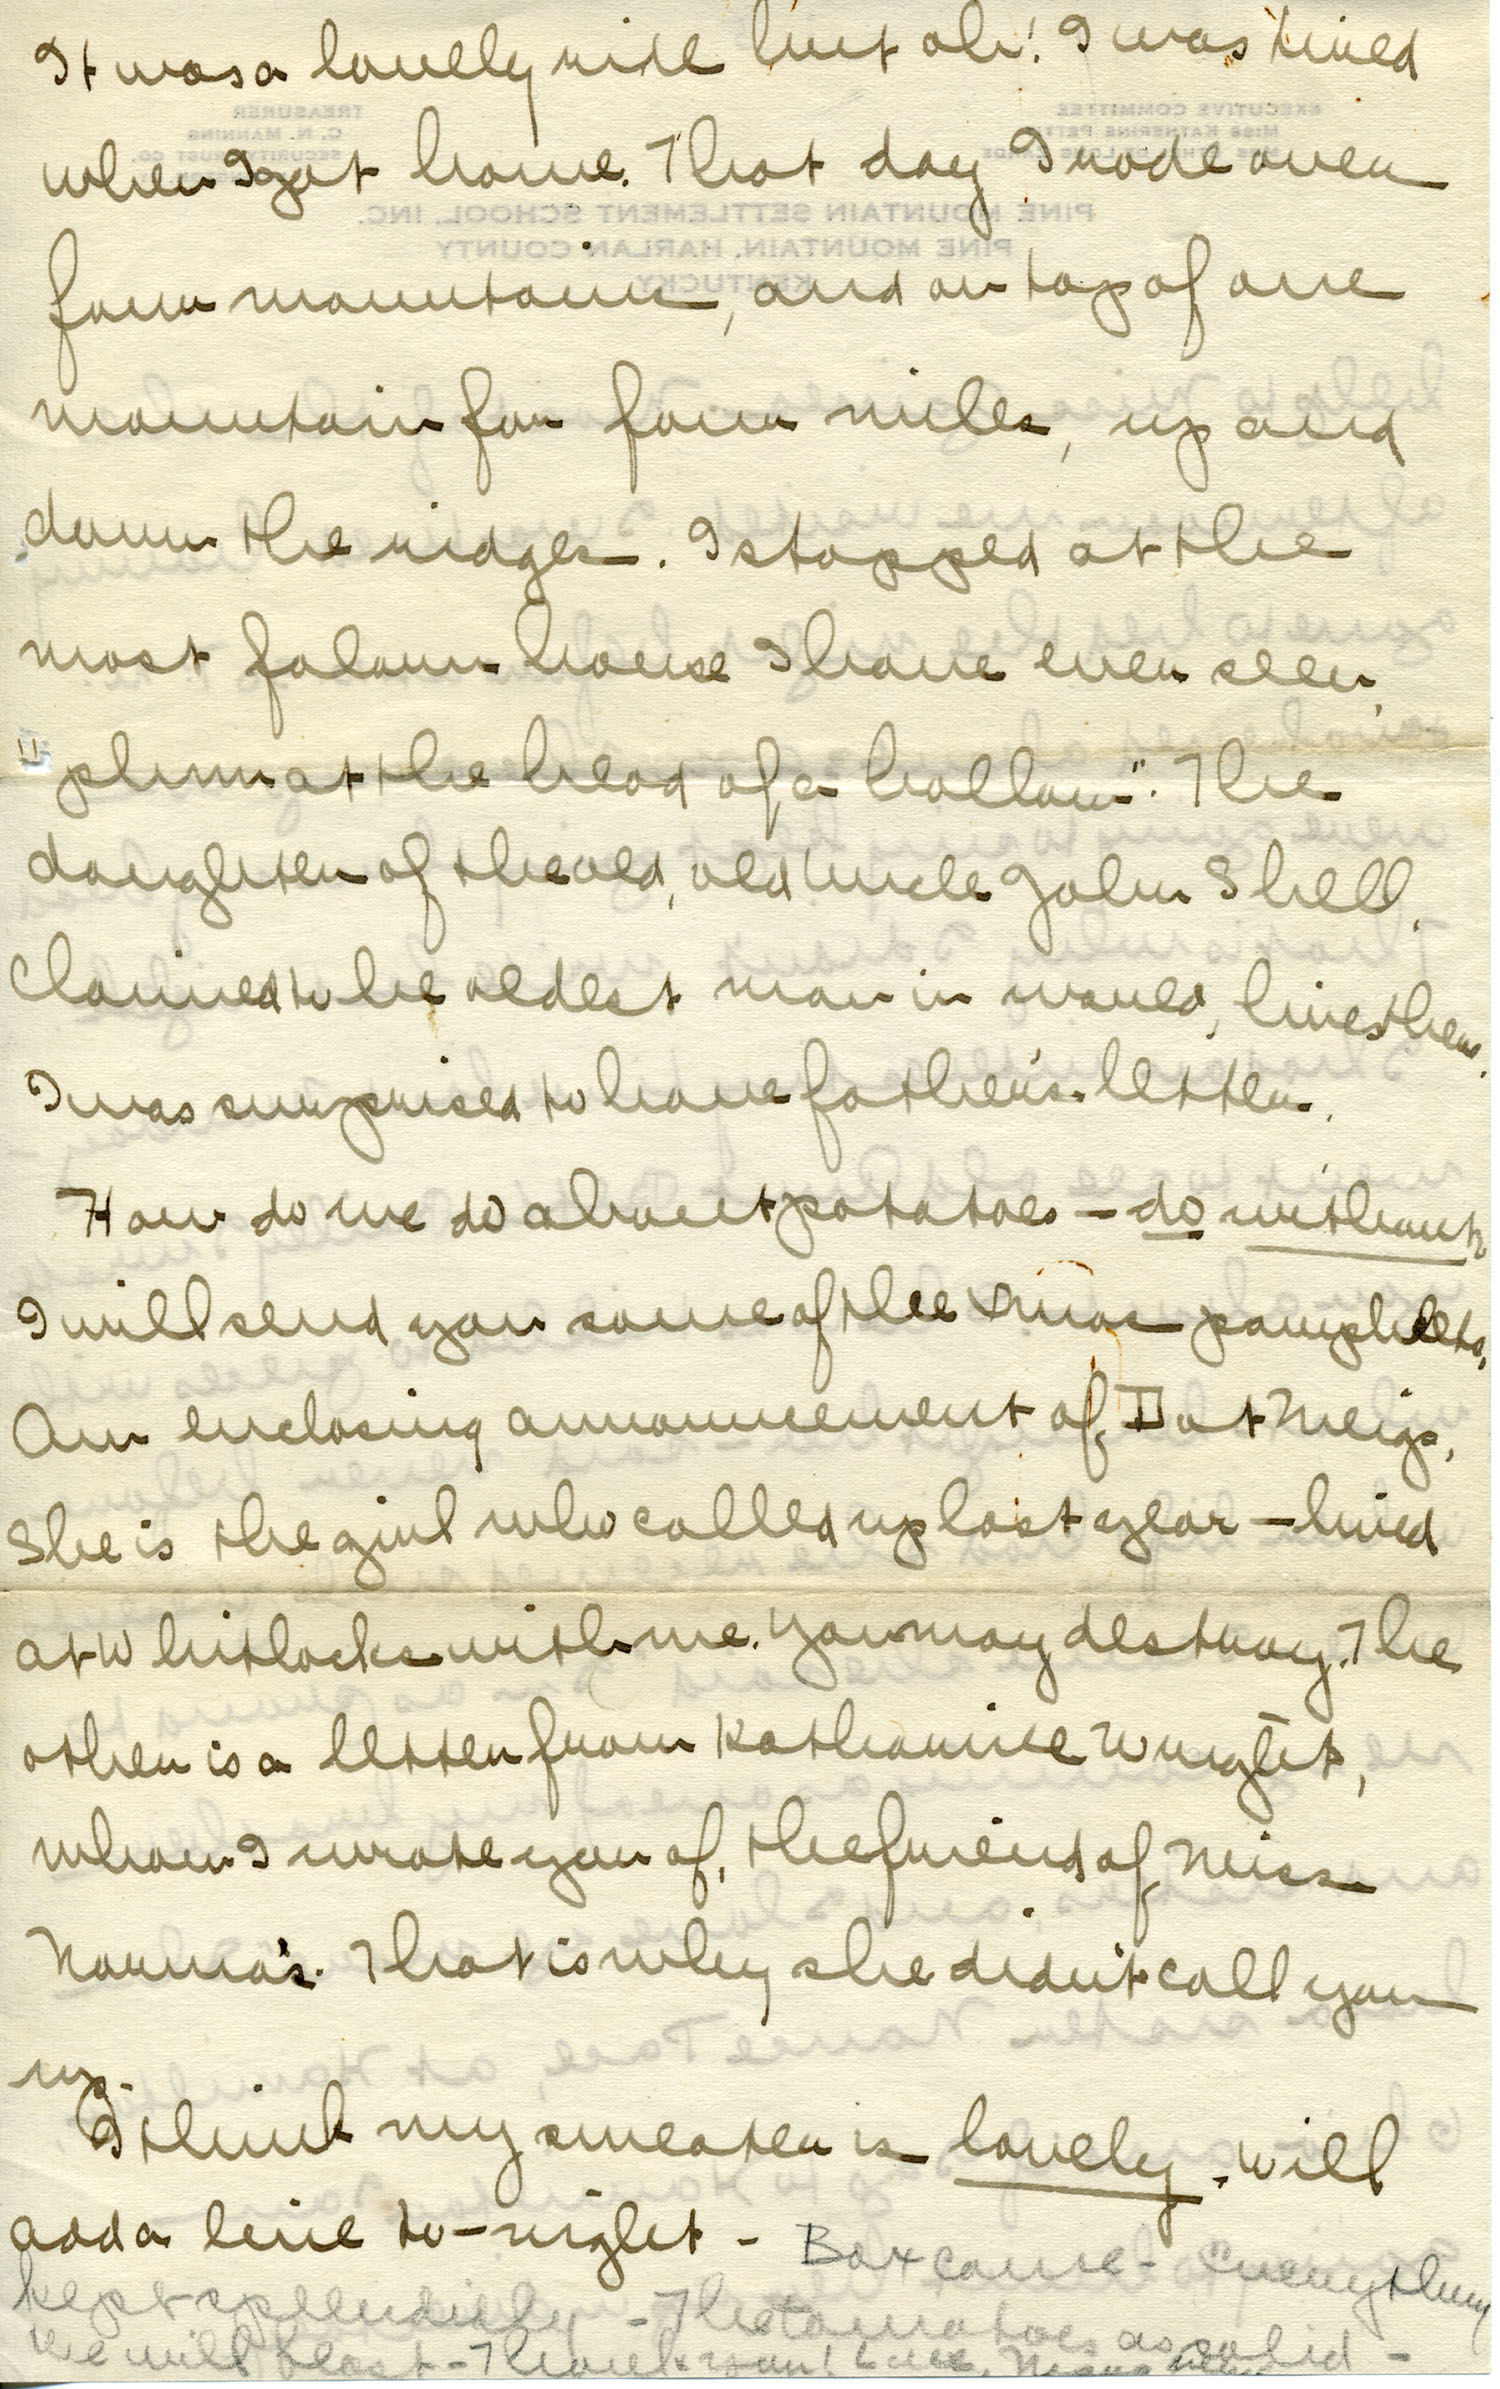 It was a lovely ride but oh! I was tired
when I got home. That day I rode over
four mountains, and on top of one
mountain for four miles, up and
down the ridges. I stopped at the
most forlorn house I have ever seen,
"plum at the head of a hollow". The
daughter of the old, old Uncle John Shell,
Claimed to be oldest man in world, lives there.
I was surprised to have father's letter.
How do we do about potatoes – do without.
I will send you some of the Xmas pamphlets,
Am enclosing announcement of Dot Meigs,
She is the girl who called up last year – lived
at Whitlocks with me. You may destroy. The
other is a letter from Katharine Wright,
whom I wrote you of, the friend of Miss
Norma's. That is why she didn't call you
up.
I think my sweater is lovely. Will
add a line to-night – Box came – Everything
kept splendidly – The tomatoes as solid –
We will feast – Thank you! Love,
EXECUTIVE COMMITTEE
MISS KATHERINE PETTIT
TREASURER
C. N. MANNING
SECURITY TRUST CO.
PINE MOUNTAIN SETTLEMENT SCHOOL, INC.
PINE MOUNTAIN, HARLAN COUNTY
KENTUCKY